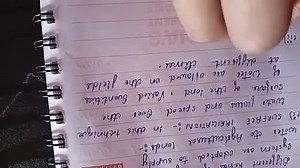 Different kinds of
System are adopted to supply
water to Agricultural lands:-
(1) SURFACE IRRIGATION:- in this technique
water flows and spread over the
surface of the land. Varied Quantities
of water are allowed on the fields
at different times.